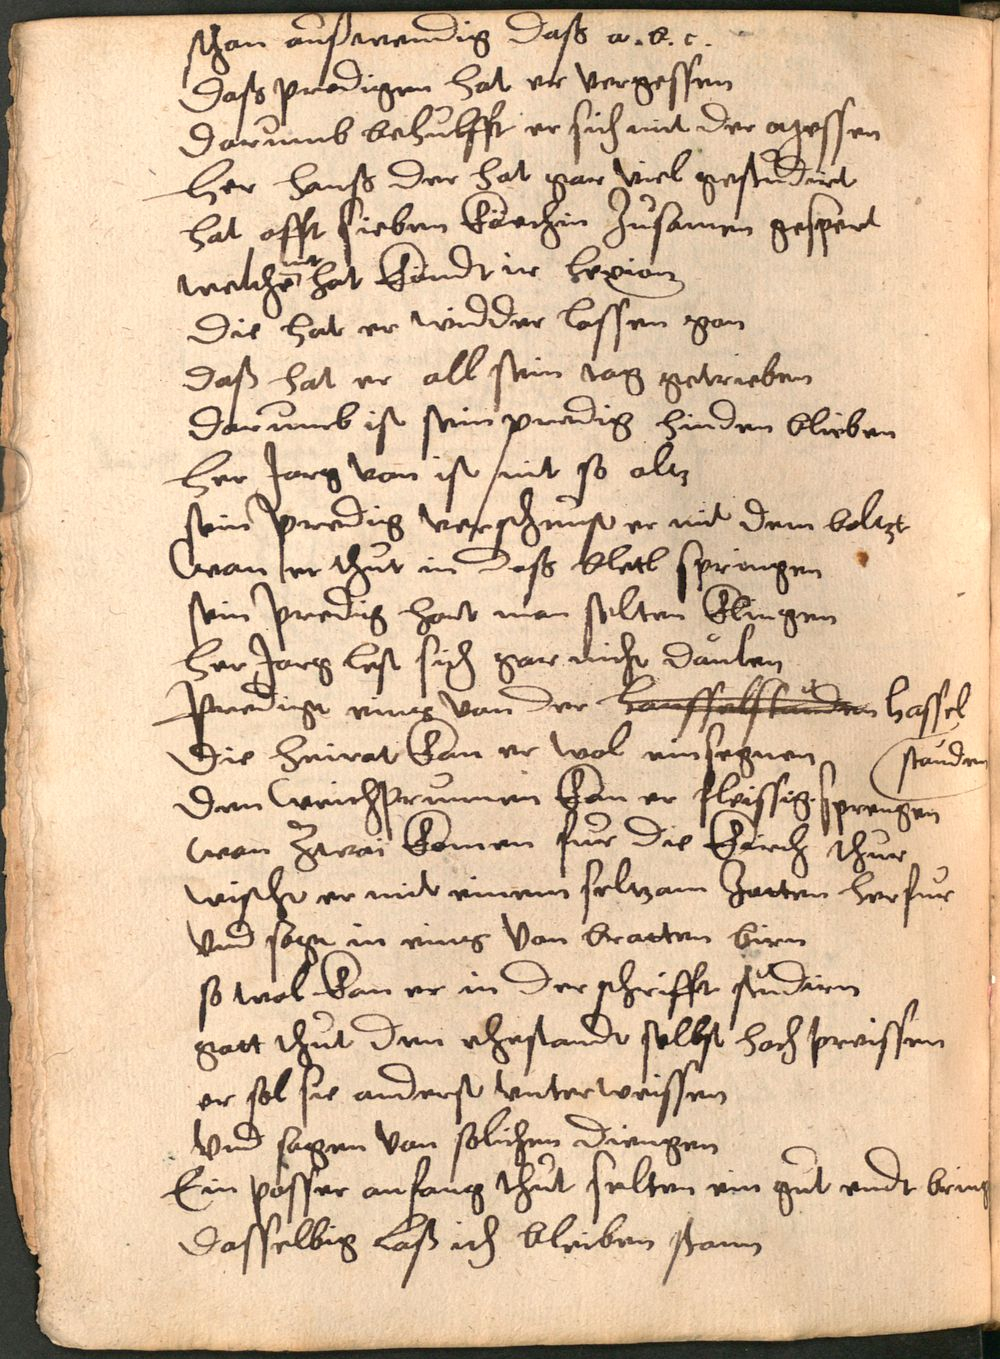 schon außwendig daß a. b. c.
daß predigen hat er vergessen
darumb behulfft er sich mit der agessen
her hanß der hat gar viel gestudirt
hat offt sieben Köechin zusamen gespert
welche nit hat Köndt ir lexion
die hat er widder lassen gon
daß hat er all sein tag getrieben
darumb ist sein predig hinden blieben
her Jorg von ist nit so alt
sein predig verscheust er mit dem boltzt
wan er thut in daß bletl springen
sein predig hört man selten Klingen
her Jorg lest sich gar nicht dauben
predigt eins von der hasselstauden hassel
stauden
die heirat Kan er wol einsegnen
den weichprunnen Kan er fleissig sprengen
wan zwai Komen fur die Kirch thur
wischt er mit einem seltzam Zotten herfur
vnd sagt in eins von bratten birn
so wol Kan er in der schrifft studirn
gott thut den ehestandt selbst hoch preissen
er sol sie anderst vnterweissen
vnd sagen von solichen diengen
Ein posser anfang thut selten ein gut endt bring
dasselbig laß ich bleiben stann